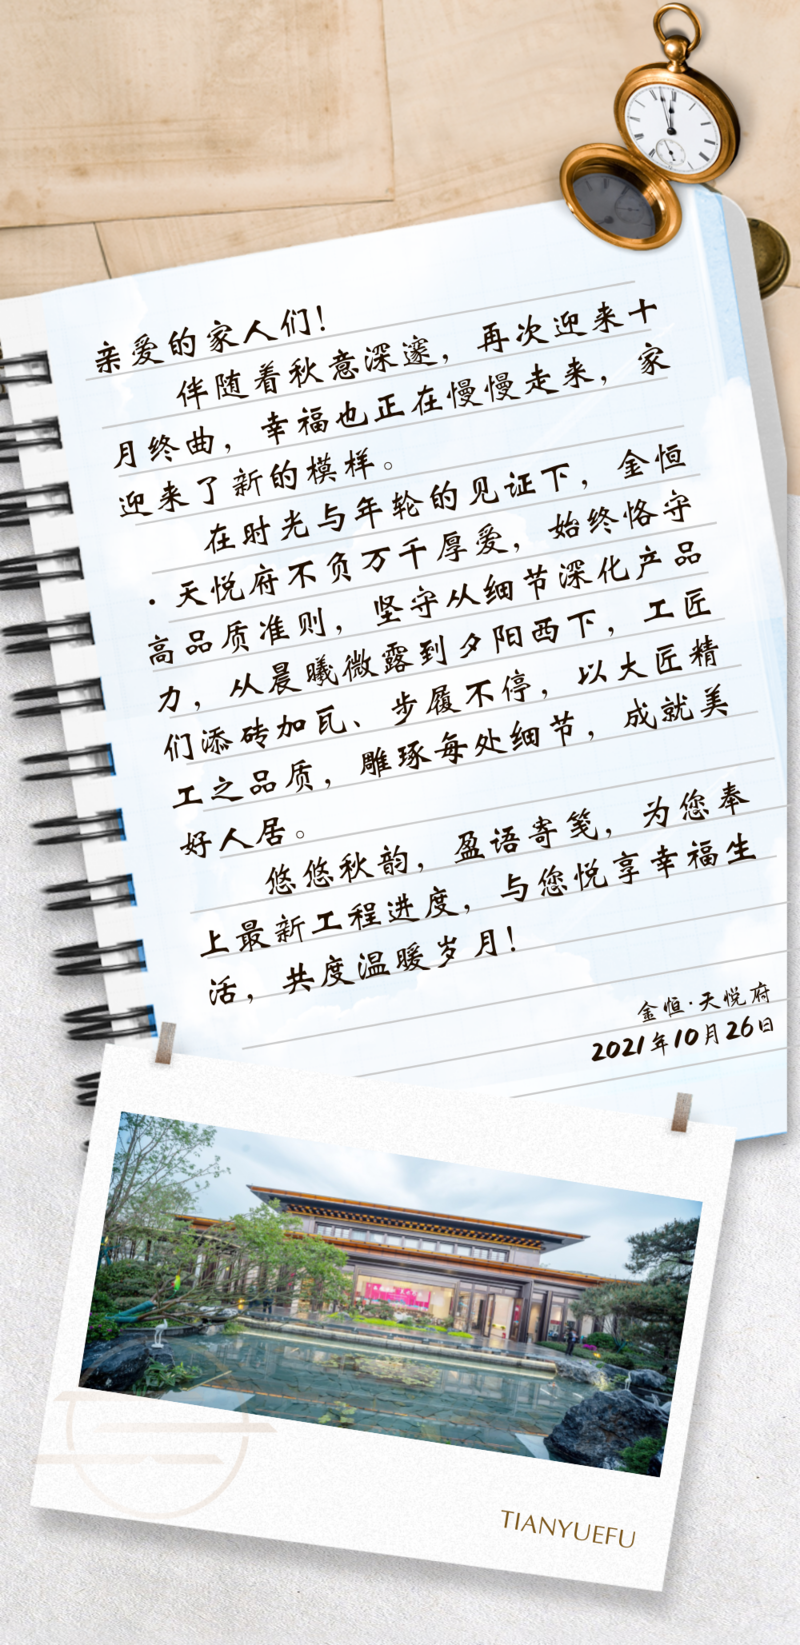 亲爱的家人们！
伴随着秋意深邃，再次迎来十
月终曲，幸福也正在慢慢走来，家
迎来了新的模样。
在时光与年轮的见证下，金恒
·天悦府不负万千厚爱，始终恪守
高品质准则，坚守从细节深化产品
力，从晨曦微露到夕阳西下，工匠
们添砖加瓦、步履不停，以大匠精
工之品质，雕琢每处细节，成就美
好人居。
悠悠秋韵，盈语寄笺，为您奉
上最新工程进度，与您悦享幸福生
活，共度温暖岁月！
金恒·天悦府
2021年10月26日
TIANYUEFU